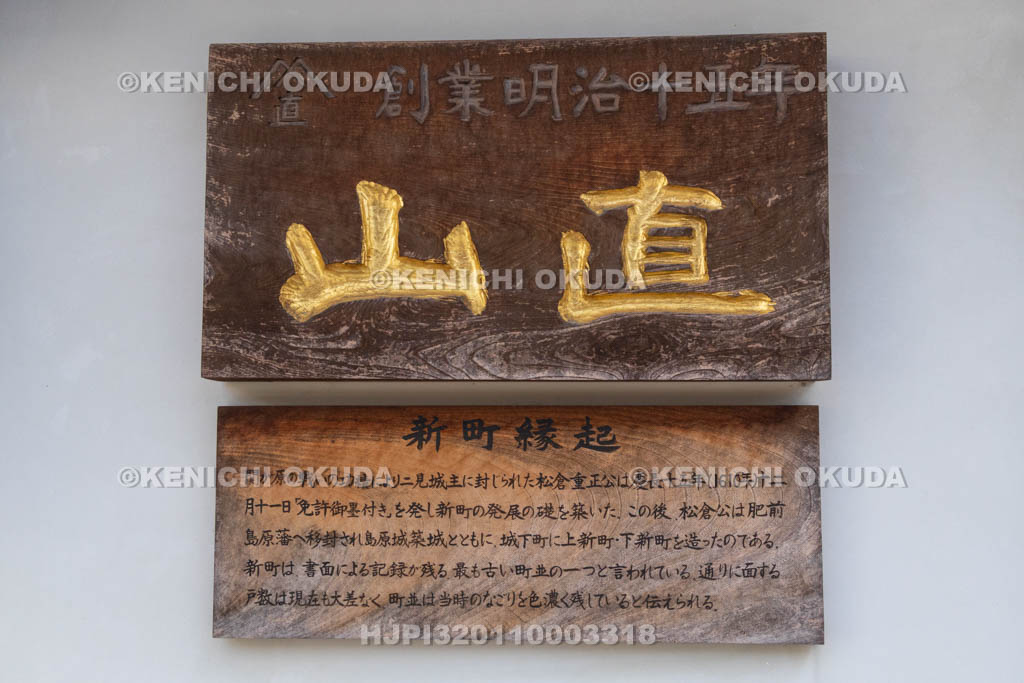 直 創業明治十五年
山直
新町縁起
関ヶ原の戦いの功績により二見城主に封じられた松倉重正公は慶長十三年(1610年)十二
月十一日「免許御墨付き」を発し新町の発展の礎を築いた。この後、松倉公は肥前
島原藩へ移封され島原城築城とともに、城下町に上新町・下新町を造ったのである。
新町は、書面による記録が残る最も古い町並の一つと言われている。通りに面する
戸数は現在も大差なく、町並は当時のなごりを色濃く残していると伝えられる。
©KENICHI OKUDA ©KENICHI OKUDA
©KENICHI OKUDA
©KENICHI OKUDA ©KENICHI OKUDA
HJPI320110003318